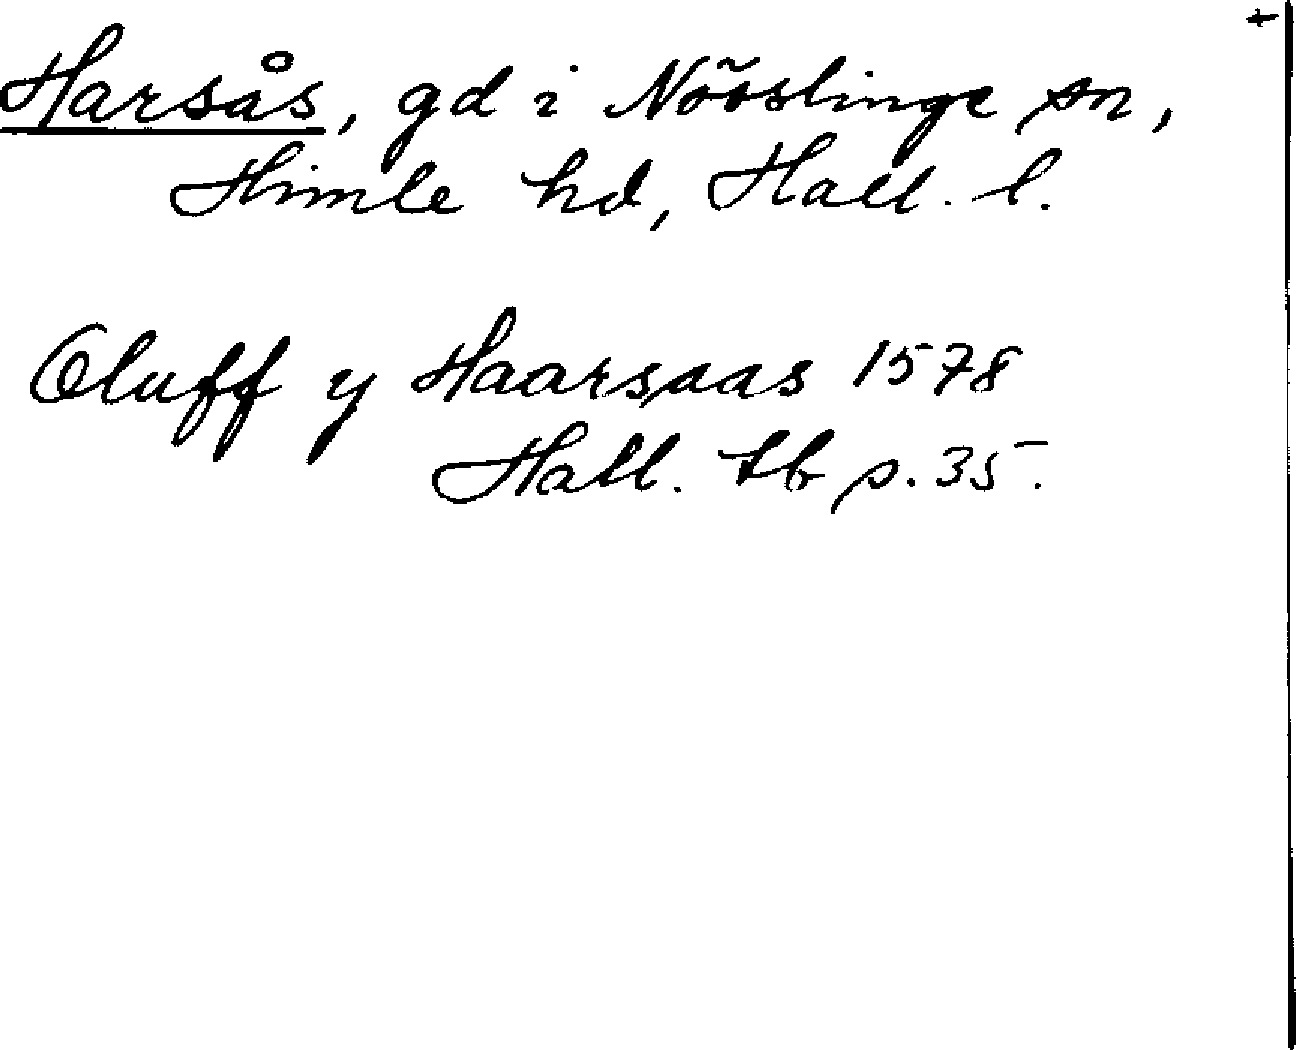 +
Harsås, gd i Nösslinge sn,
Himle hd, Hall. l.
Oluff y Haarsaas 1578
Hall. tb p. 35.